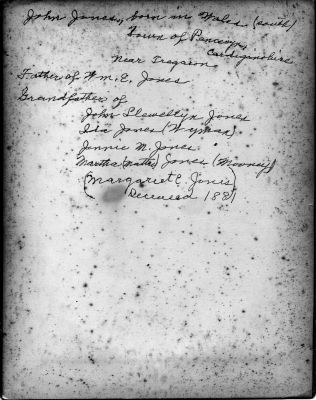 John Jones, born in Wales (south)
Town of Pencwm,
Cardiganshire
near Tregaron
Father of Wm. E. Jones
Grandfather of
John Llewellyn Jones
Ida Jones (Wyman)
Jennie M. Jones
Martha (Matte) Jones (Mooney)
(Margaret C. Jones)
Deceased 1881